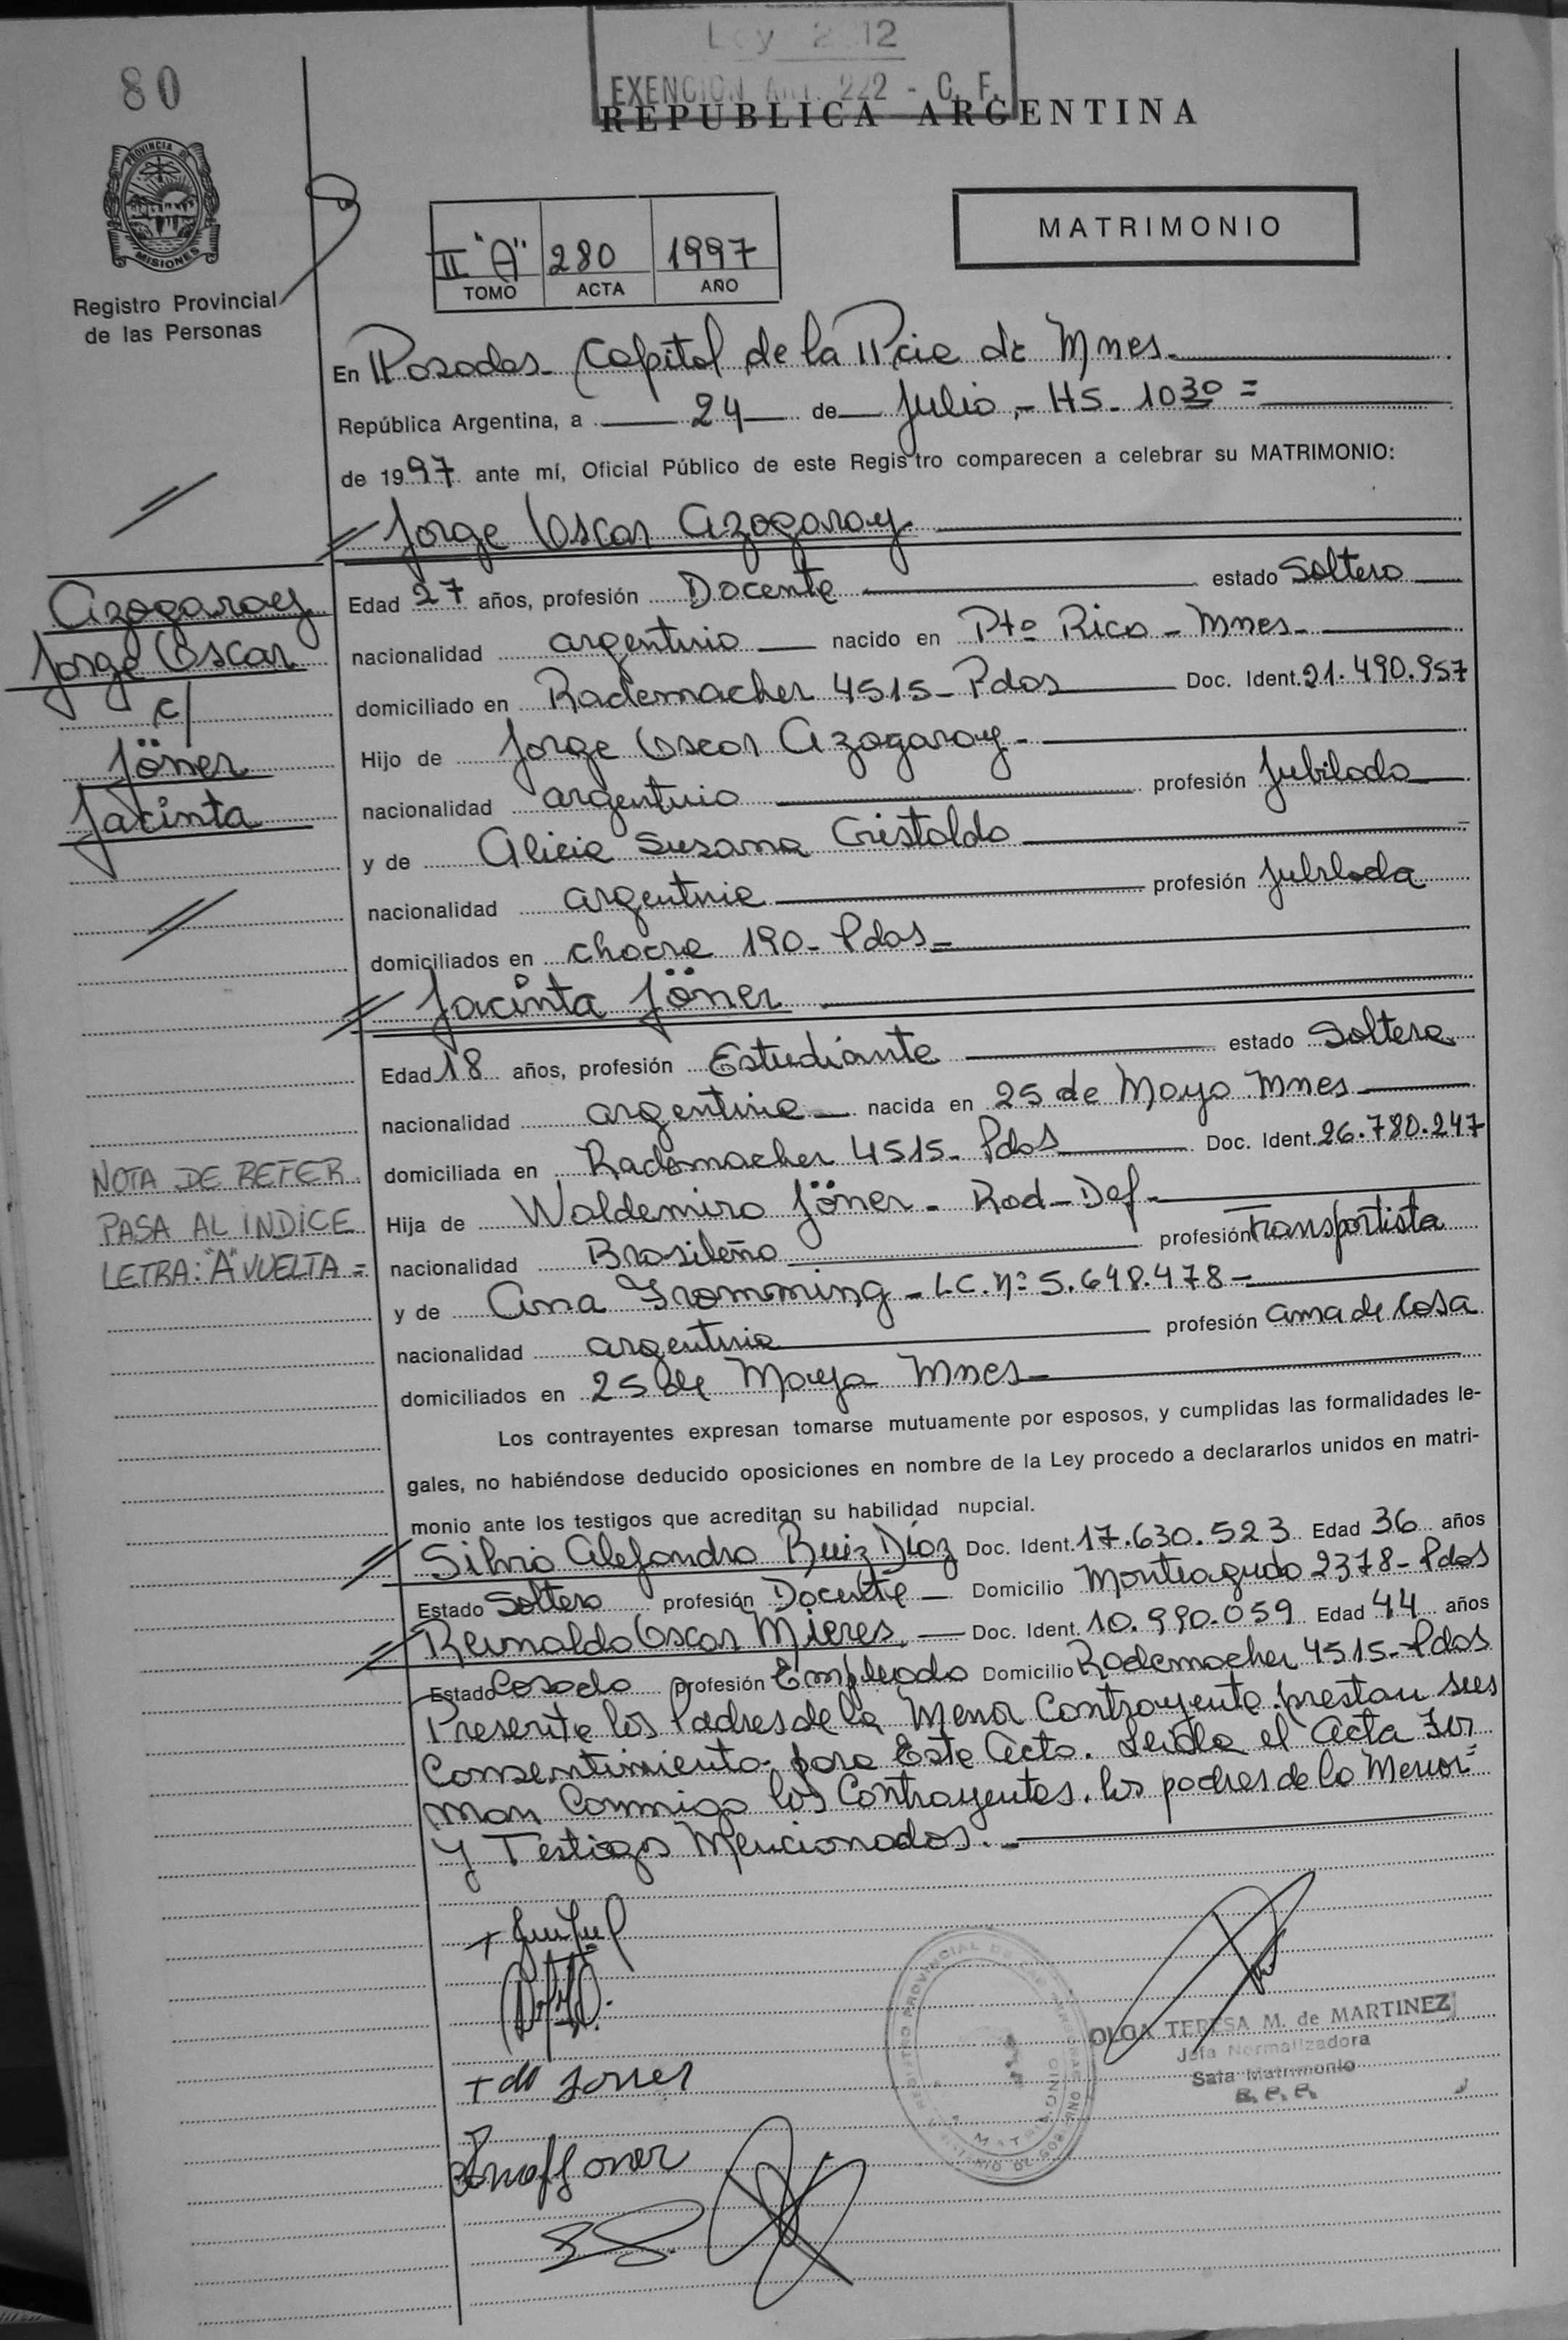 80
Ley 2.12
EXENCION Art. 222 - C. F.
REPUBLICA ARGENTINA
PROVINCIA DE
MISIONES
Registro Provincial
de las Personas
II "A" 280 1997
TOMO ACTA AÑO
MATRIMONIO
En Posadas - Capital de la Pcia de Mnes.
República Argentina, a 24 de Julio - HS - 10 30 =
de 1997 ante mí, Oficial Público de este Registro comparecen a celebrar su MATRIMONIO:
Jorge Oscar Azogaray
Edad 27 años, profesión Docente estado Soltero
nacionalidad argentino nacido en Pto Rico - Mnes -
domiciliado en Rademacher 4515 - Pdas Doc. Ident. 21.490.957
Hijo de Jorge Oscar Azogaray -
nacionalidad argentino profesión Jubilado
y de Alicia Susana Cristaldo
nacionalidad argentina profesión Jubilada
domiciliados en 190 - Pdas =
Jacinta Jöner
Edad 18 años, profesión Estudiante estado Soltera
nacionalidad argentina nacida en 25 de Mayo Mnes
domiciliada en Rademacher 4515 - Pdas Doc. Ident. 26.780.247
Hija de Waldemiro Jöner - Rad - Def -
nacionalidad Brasileño profesión Transportista
y de Ana Gromming - L.C. Nº 5.648.478 -
nacionalidad argentina profesión ama de Casa
domiciliados en 25 de Mayo Mnes -
Los contrayentes expresan tomarse mutuamente por esposos, y cumplidas las formalidades le-
gales, no habiéndose deducido oposiciones en nombre de la Ley procedo a declararlos unidos en matri-
monio ante los testigos que acreditan su habilidad nupcial.
Silvio Alejandro Ruiz Díaz Doc. Ident. 17.630.523 Edad 36 años
Estado Soltero profesión Docente Domicilio Monteagudo 2378 - Pdas
Reinaldo Oscar Mieres. Doc. Ident. 10.990.059 Edad 44 años
Estado Casado profesión Empleado Domicilio Rademacher 4515 - Pdas
Presente los Padres de la Menor Contrayente prestan sus
Consentimiento para Este Acto. Leída el Acta Fir
man Conmigo los Contrayentes, los padres de la Menor =
Y Testigos Mencionados. -
Azogaray
Jorge Oscar
c/
Jöner
Jacinta
NOTA DE REFER.
PASA AL INDICE
LETRA: "A" VUELTA =
Joner
Ana Joner
OLGA TERESA M. de MARTINEZ
Jefa Normalizadora
Sala Matrimonio
R. P. P.